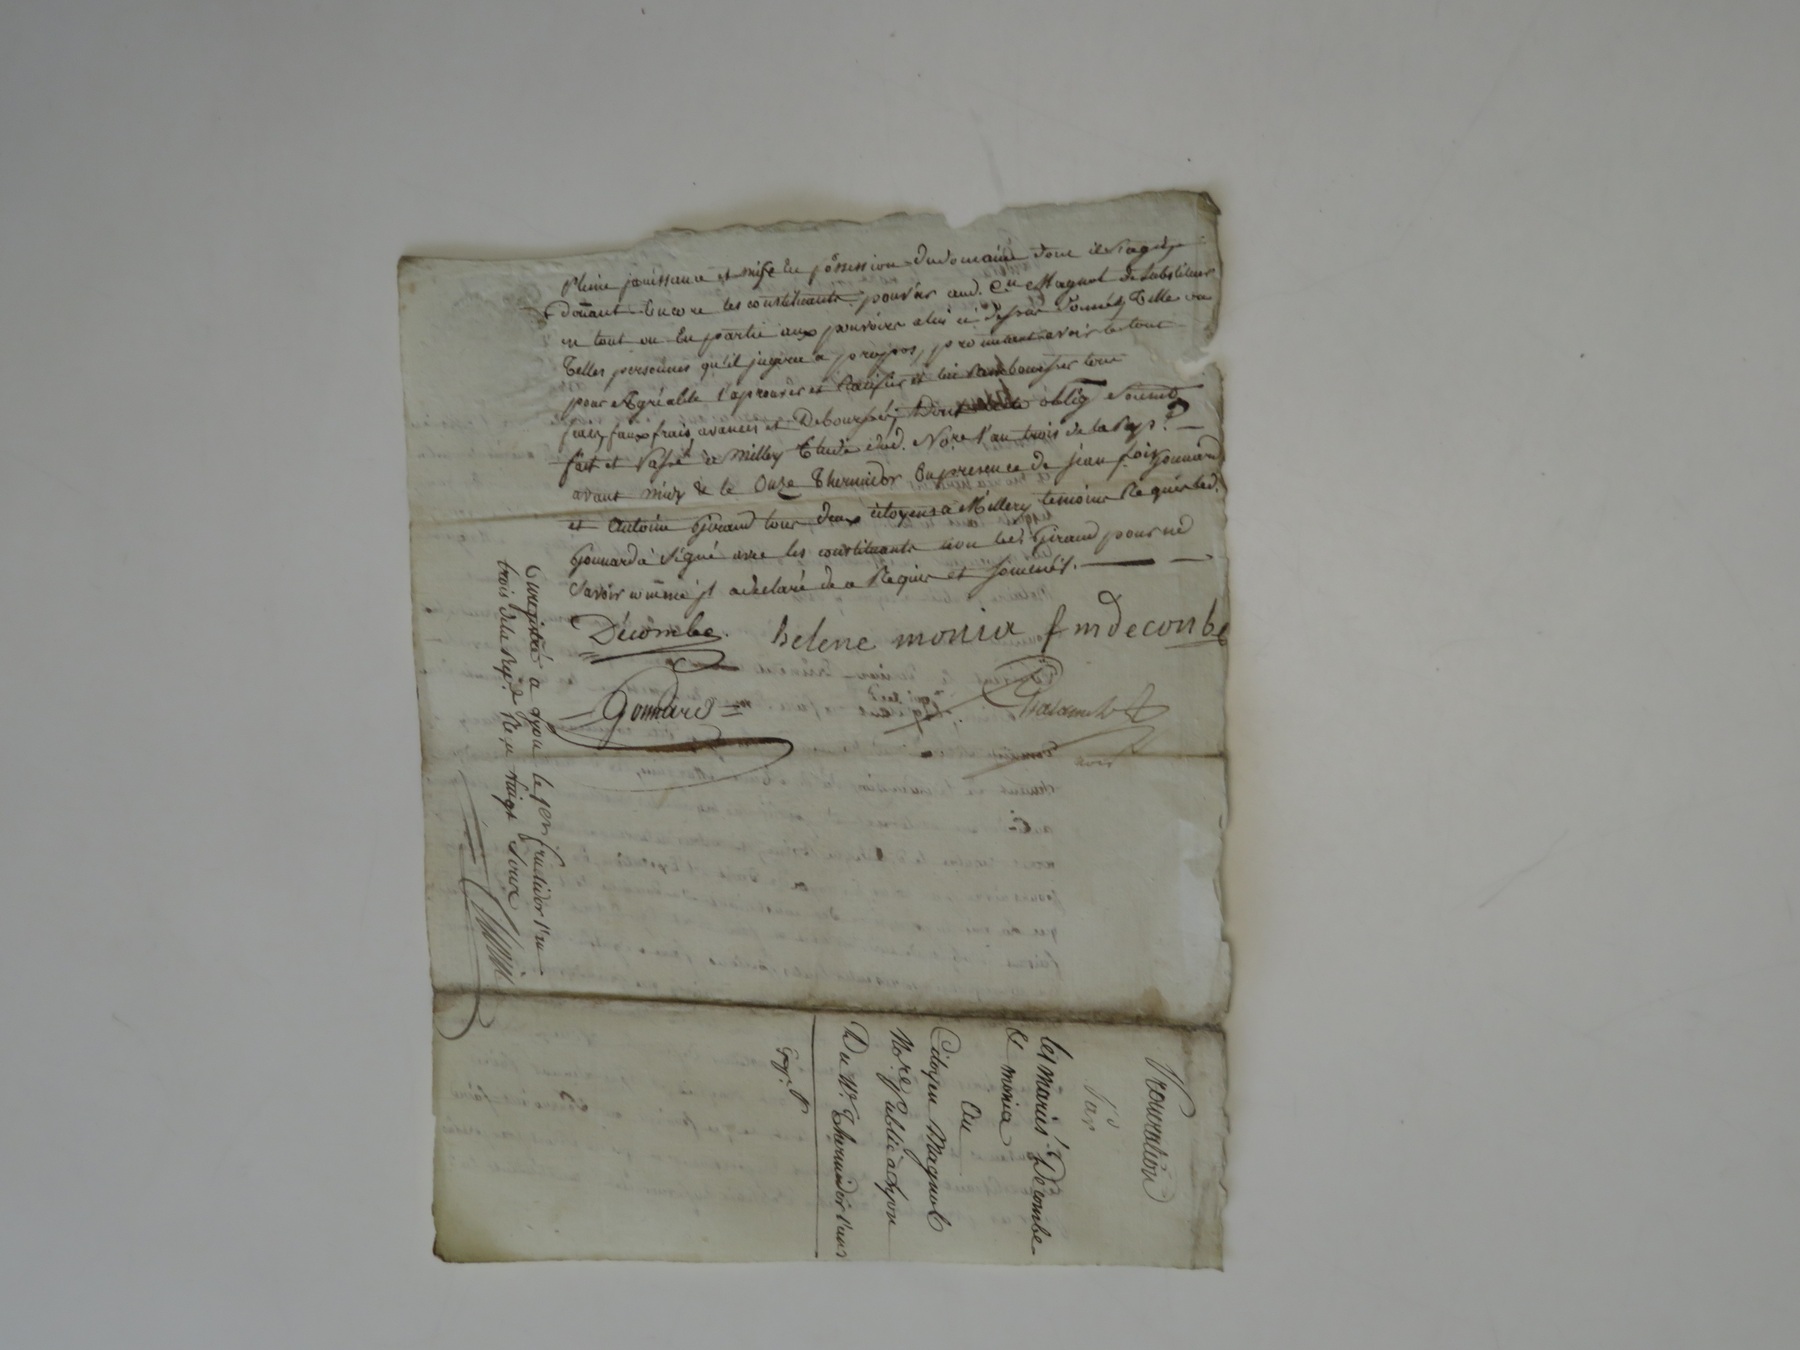 pleine jouissance et mise en possession du domaine dont il s'agit
donant Encore les constituants pouvoir aud. Cen Magnol de substituer
en tout ou En partie aux pouvoirs a lui ci dessus donnés Telle ou
Telles personnes qu'il jugera a propos, promettant avoir le tout
pour Agréable l'aprouver et Ratifier et lui Rembourser tous
frais, faux frais, avances et Deboursés, Dont oblig Soumis
fait et Passé à Millery Etude dud. Nore l'an trois de la Rep.
avant midy & le Onze Thermidor En presence de jean fois Gonnard
et Antoine Giraud tous deux citoyens a Millery temoins Requis led.
Gonnard à Signé avec les constituants non led. Giraud pour ne
Savoir comme jl a declaré de a Requis et Sommés.
Décombe. helene monier f m decombe
Gonnard
Enregistré a Lyon le 1er fructidor l'an
trois de la Rep. Reçu Vingt Sous
Procuration
Par
les mariés Décombe
& monier
Au
Citoyen Magnol
Nore Public a Lyon
Du 11 Thermidor l'an 3